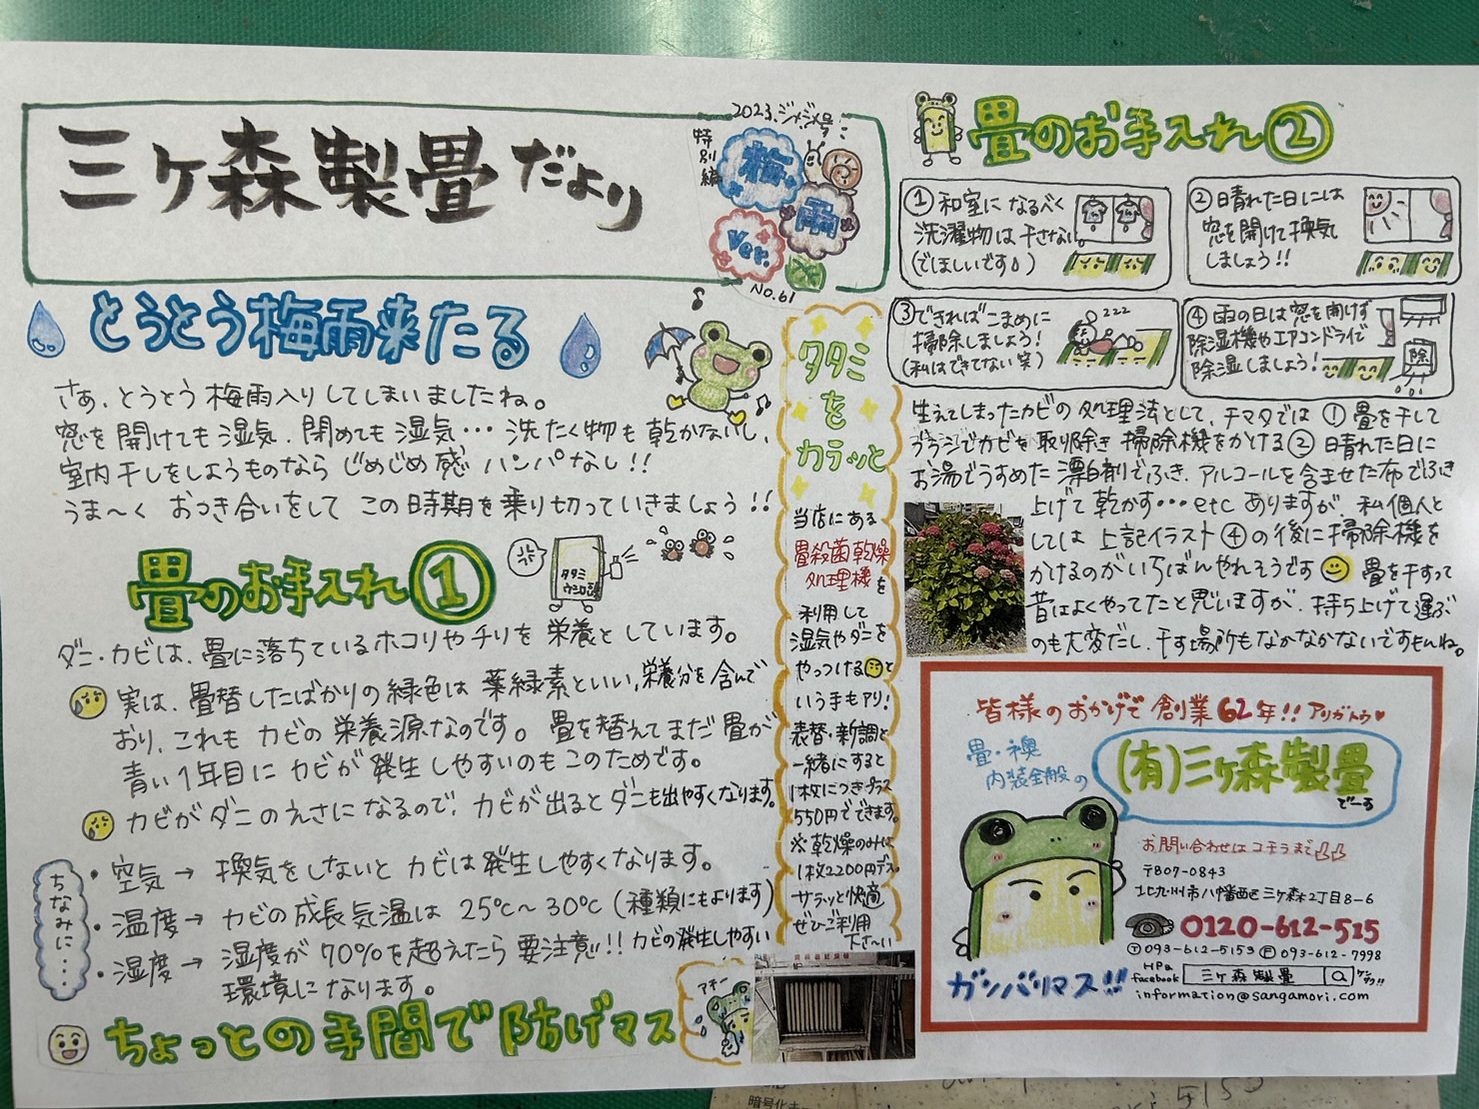 三ヶ森製畳だより
2023.ジメジメ号
特別編
梅雨
Ver.
No.61
とうとう梅雨来たる
さあ、とうとう梅雨入りしてしまいましたね。
窓を開けても湿気、閉めても湿気… 洗たく物も乾かないし、
室内干しをしようものなら じめじめ感 ハンパなし!!
うま〜く おつき合いをして この時期を乗り切っていきましょう!!
畳のお手入れ①
タタミ
ダニ・カビは、畳に落ちているホコリやチリを 栄養としています。
実は、畳替したばかりの緑色は 葉緑素といい、栄養分を含んで
おり、これも カビの栄養源なのです。畳を替えてまだ畳が
青い1年目に カビが発生しやすいのもこのためです。
カビがダニのえさになるので、カビが出るとダニも出やすくなります。
ちなみに…
・空気→ 換気をしないと カビは発生しやすくなります。
・温度→ カビの成長気温は 25℃〜30℃(種類にもよります)
・湿度→ 湿度が 70%を超えたら 要注意!! カビの発生しやすい
環境になります。
ちょっとの手間で防げマス
アチー
タタミ
を
カラッと
当店にある
畳殺菌乾燥
処理機を
利用して
湿気やダニを
やっつけると
いう手もアリ!
表替・新調と
一緒にすると
1枚につきプラス
550円でできます。
※乾燥のみは
1枚2200円デス。
サラッと快適
ぜひご利用
下さ〜い
畳のお手入れ②
① 和室に なるべく
洗濯物は干さない。
(でほしいです)
② 晴れた日には
窓を開けて換気
しましょう!!
③ できればこまめに
掃除しましょう!
(私はできてない 笑)
zzz
④ 雨の日は窓を開けず
除湿機やエアコンドライで
除湿しましょう!
除
生えてしまったカビの処理法として、チマタでは ① 畳を干して
ブラシでカビを取り除き 掃除機をかける ② 晴れた日に
お湯でうすめた 漂白剤でふき、アルコールを含ませた布でふき
上げて乾かす…etc ありますが、私個人と
しては 上記イラスト④の後に掃除機を
かけるのがいちばんやれそうです 畳を干すって
昔はよくやってたと思いますが、持ち上げて運ぶ
のも大変だし、干す場所もなかなかないですもんね。
皆様のおかげで 創業62年!! アリガトウ♥
畳・襖
内装全般の
(有)三ヶ森製畳
でーす
お問い合わせは コチラまで
〒807-0843
北九州市八幡西区三ヶ森2丁目8-6
0120-612-515
Ⓣ093-612-5153 Ⓕ093-612-7998
HP&
facebook 三ヶ森製畳
information@sangamori.com
ガンバリマス!!
暗号化キー
5153